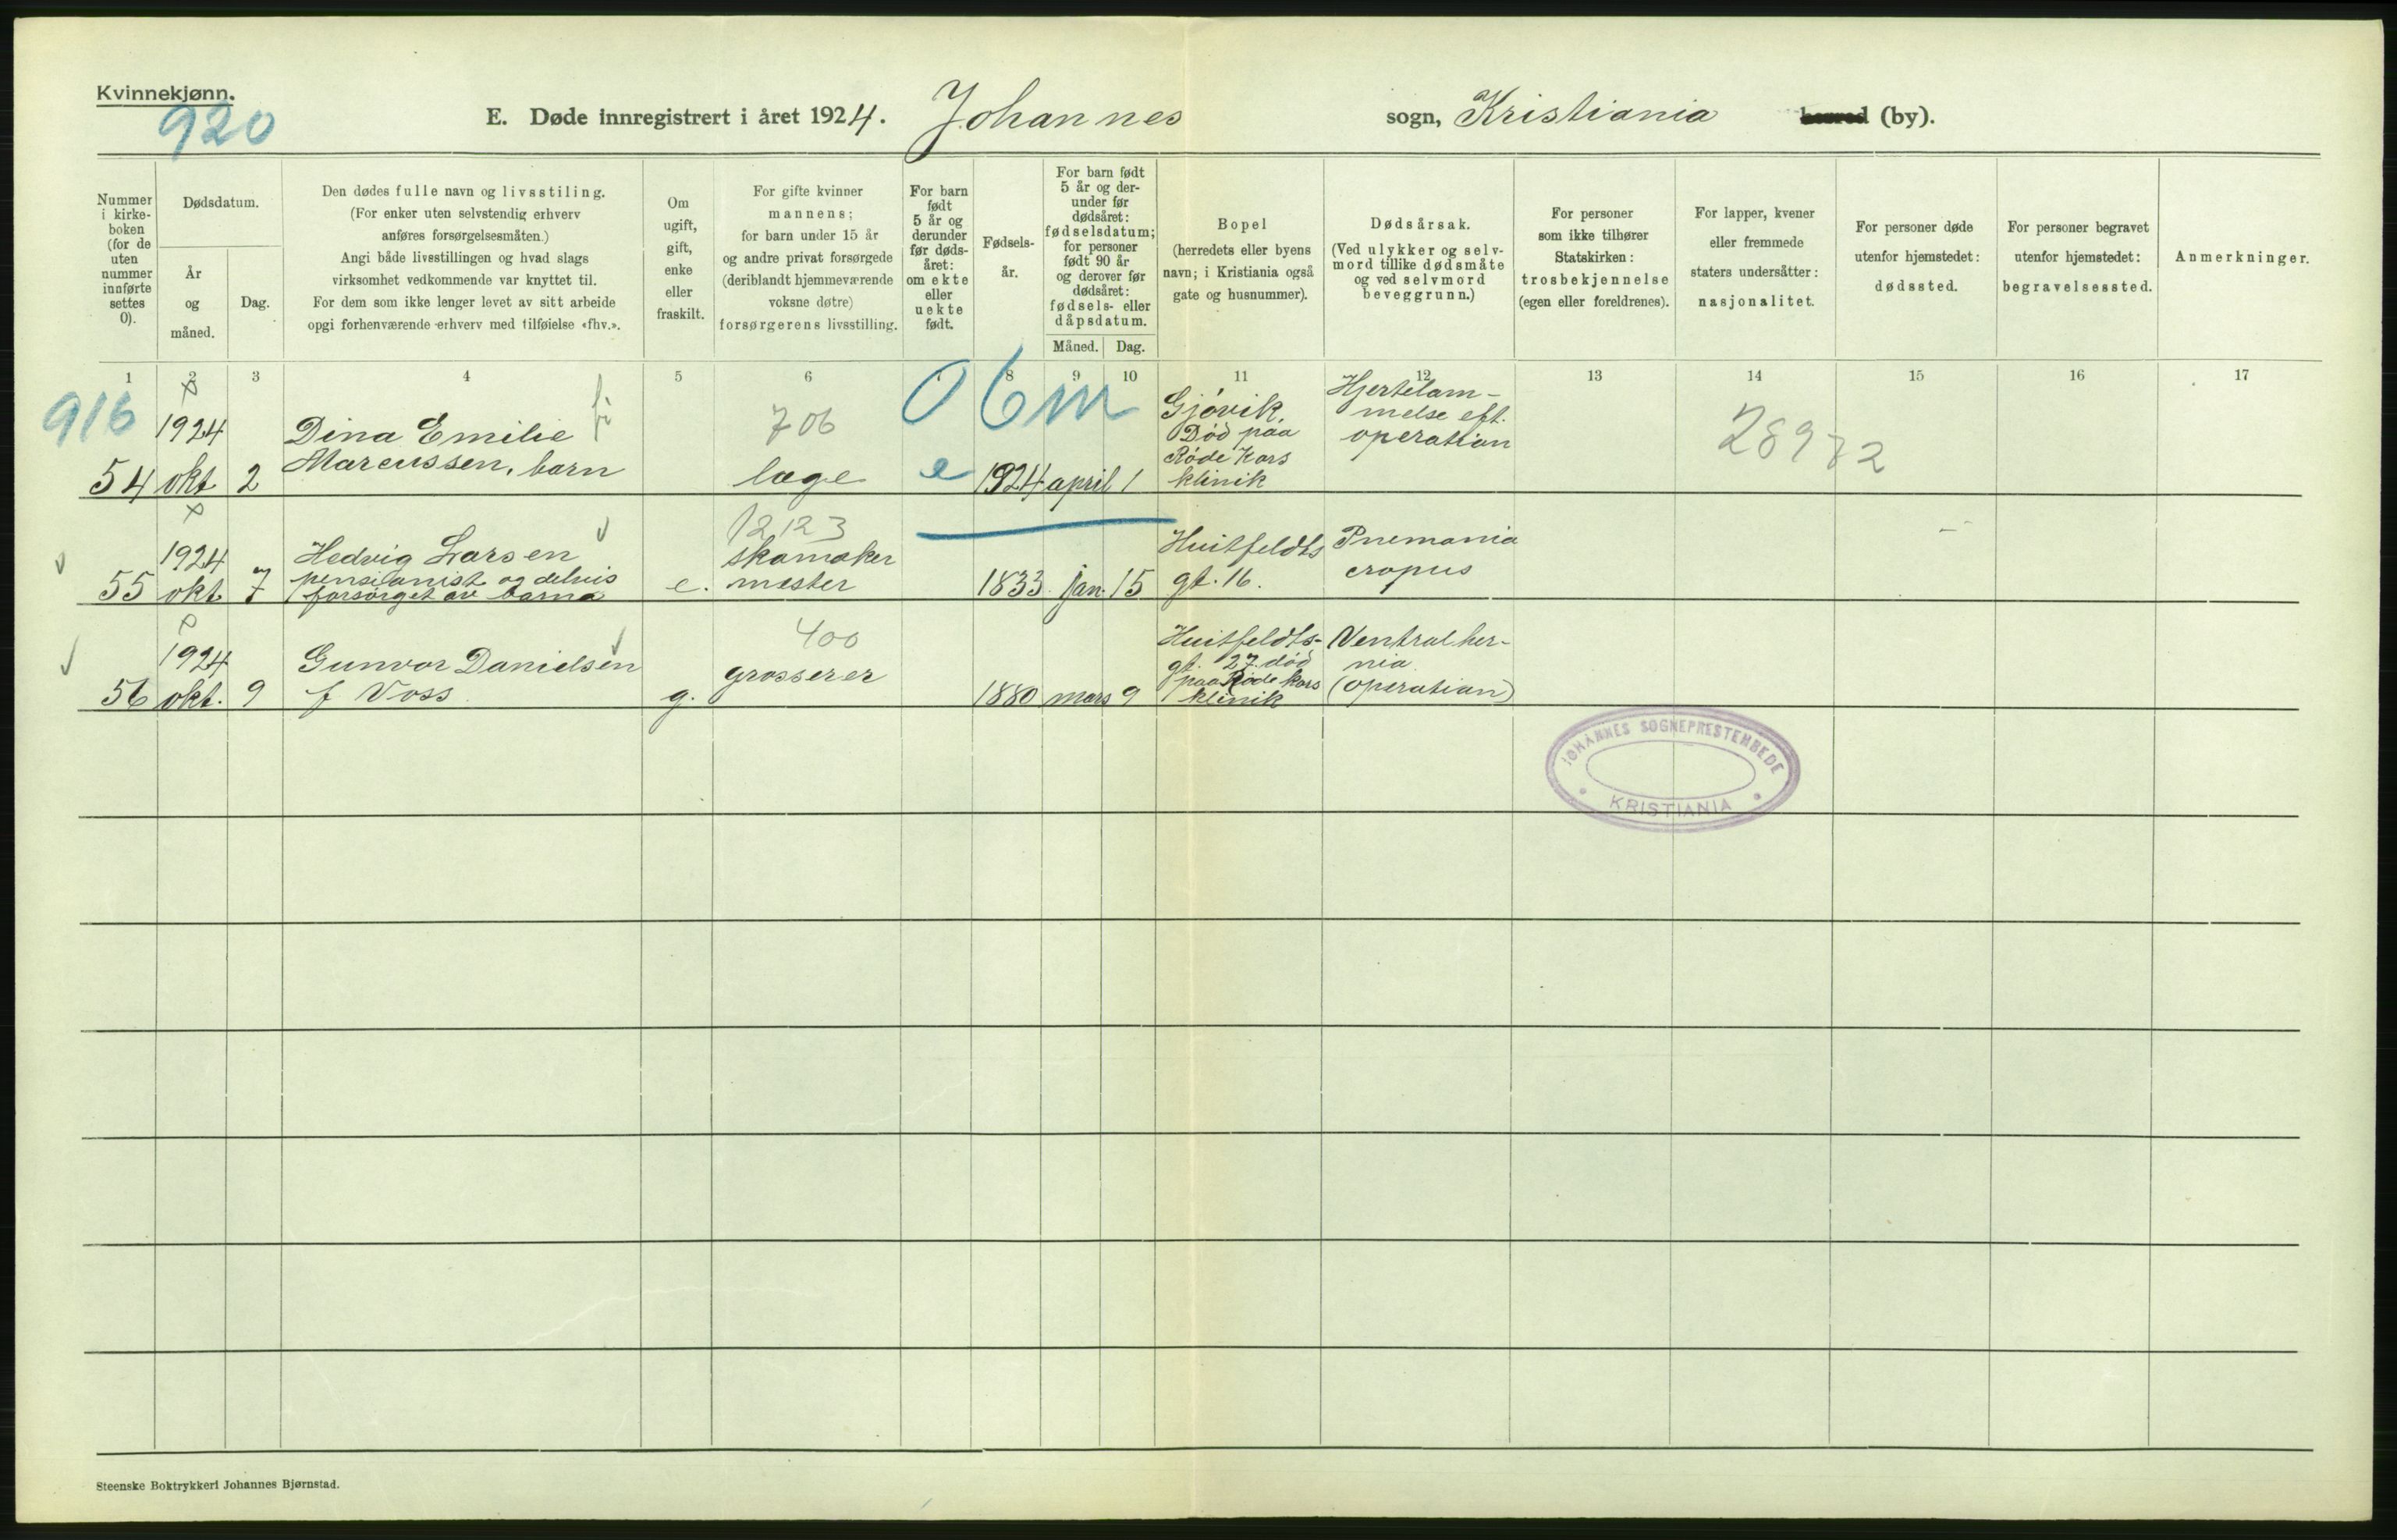 Kvinnekjønn.
920
E. Døde innregistrert i året 1924. Johannes sogn, Kristiania herred (by).
Nummer i kirke- boken (for de uten nummer innførte settes 0).
Dødsdatum.
År og måned.
Dag.
Den dødes fulle navn og livsstiling.
(For enker uten selvstendig erhverv
anføres forsørgelsesmåten.)
Angi både livsstillingen og hvad slags
virksomhet vedkommende var knyttet til.
For dem som ikke lenger levet av sitt arbeide
opgi forhenværende erhverv med tilføielse «fhv.».
Om
ugift,
gift,
enke
eller
fraskilt.
For gifte kvinner
mannens;
for barn under 15 år
og andre privat forsørgede
(deriblandt hjemmeværende
voksne døtre)
forsørgerens livsstilling.
For barn
født
5 år og
derunder
før døds-
året:
om ekte
eller
uekte
født.
Fødsels-
år.
For barn født
5 år og der-
under før
dødsåret:
fødselsdatum;
for personer
født 90 år
og derover før
dødsåret:
fødsels- eller
dåpsdatum.
Måned. Dag.
Bopel
(herredets eller byens
navn; i Kristiania også
gate og husnummer).
Dødsårsak.
(Ved ulykker og selv-
mord tillike dødsmåte
og ved selvmord
beveggrunn.)
For personer
som ikke tilhører
Statskirken:
trosbekjennelse
(egen eller foreldrenes).
For lapper, kvener
eller fremmede
staters undersåtter:
nasjonalitet.
For personer døde
utenfor hjemstedet:
dødssted.
For personer begravet
utenfor hjemstedet:
begravelsessted.
Anmerkninger.
1 2 3 4 5 6 8 9 10 11 12 13 14 15 16 17
916
54
1924
okt
2
Dina Emilie
Marcussen, barn
706
læge
06m
e
1924 april 1
Gjøvik.
Død paa
Røde Kors
klinik
Hjertelam-
melse eft.
operation
28972
55
1924
okt.
7
Hedvig Larsen
pensionist og delvis
forsørget av barna
e.
12123
skomaker
mester
1833 jan. 15
Huitfeldts
gt. 16.
Pnemonia
cropus
56
1924
okt.
9
Gunvor Danielsen
f Voss
g.
400
grosserer
1880 mars 9
Huitfeldts-
gt. 27. død
paa Røde Kors
klinik
Ventral her-
nia
(operation)
JOHANNES SOGNEPRESTEMBEDE
KRISTIANIA
Steenske Boktrykkeri Johannes Bjørnstad.